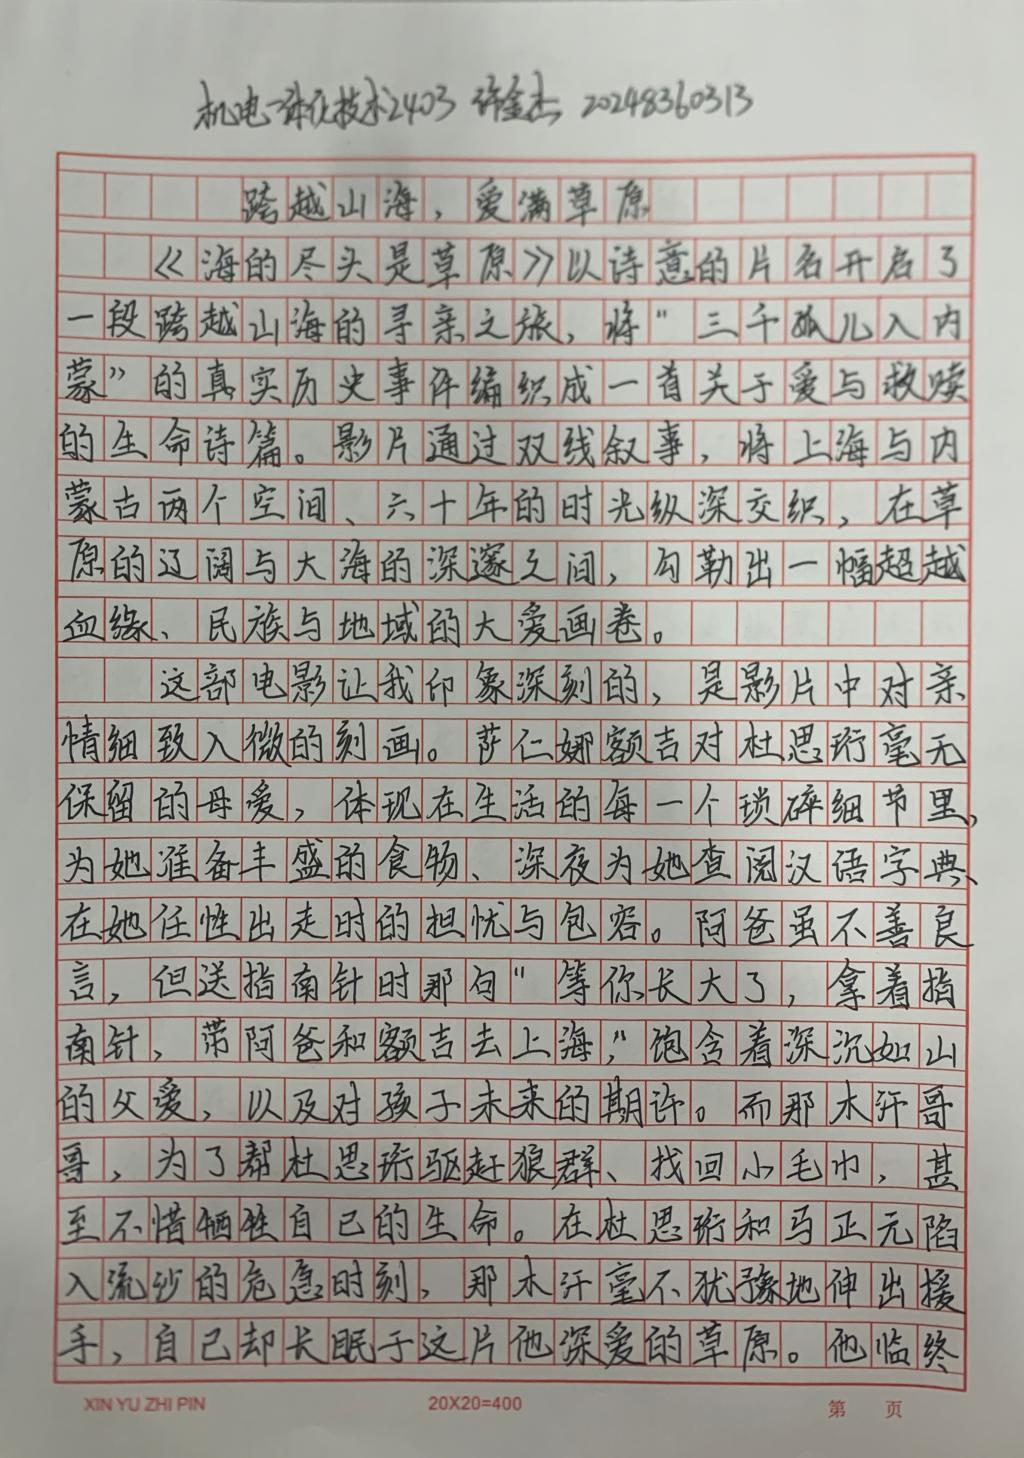 机电一体化技术2403 许金杰 20248360313
跨越山海，爱满草原
《海的尽头是草原》以诗意的片名开启了
一段跨越山海的寻亲之旅，将“三千孤儿入内
蒙”的真实历史事件编织成一首关于爱与救赎
的生命诗篇。影片通过双线叙事，将上海与内
蒙古两个空间、六十年的时光纵深交织，在草
原的辽阔与大海的深邃之间，勾勒出一幅超越
血缘、民族与地域的大爱画卷。
这部电影让我印象深刻的，是影片中对亲
情细致入微的刻画。萨仁娜额吉对杜思珩毫无
保留的母爱，体现在生活的每一个琐碎细节里，
为她准备丰盛的食物、深夜为她查阅汉语字典、
在她任性出走时的担忧与包容。阿爸虽不善良
言，但送指南针时那句“等你长大了，拿着指
南针，带阿爸和额吉去上海，”饱含着深沉如山
的父爱，以及对孩子未来的期许。而那木汗哥
哥，为了帮杜思珩驱赶狼群、找回小毛巾，甚
至不惜牺牲自己的生命。在杜思珩和马正元陷
入流沙的危急时刻，那木汗毫不犹豫地伸出援
手，自己却长眠于这片他深爱的草原。他临终
XIN YU ZHI PIN
20X20=400
第 页